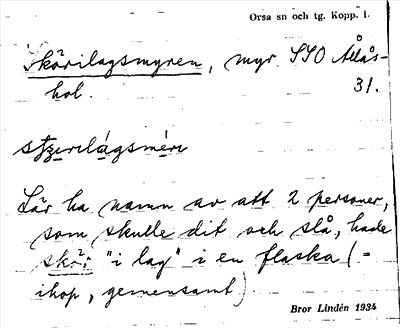 Orsa sn och tg. Kopp. l.
Skörilagsmyren, myr SSO Åtlås-
hol. 31.
Lär ha namn av att 2 personer,
som skulle dit och slå, hade
skör "i lag" i en flaska (=
ihop, gemensamt)
Bror Lindén 1934